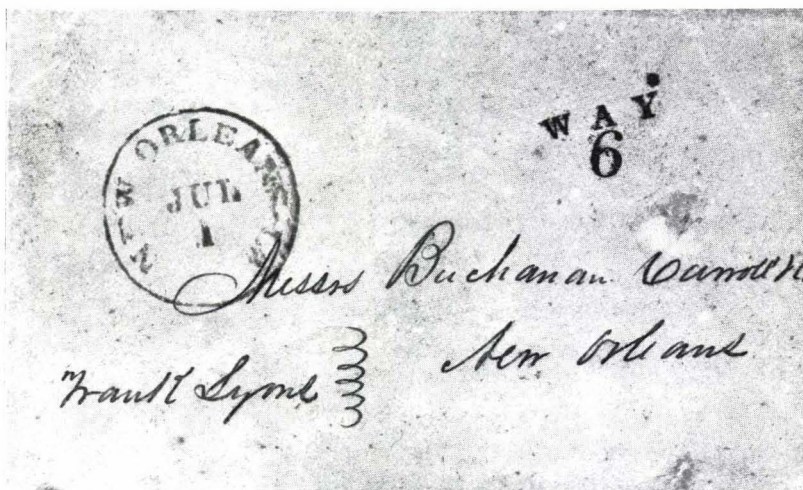 NEW ORLEANS LA
JUL
1
WAY
6
Messrs Buchanan Carroll
New Orleans
Frank Lyons